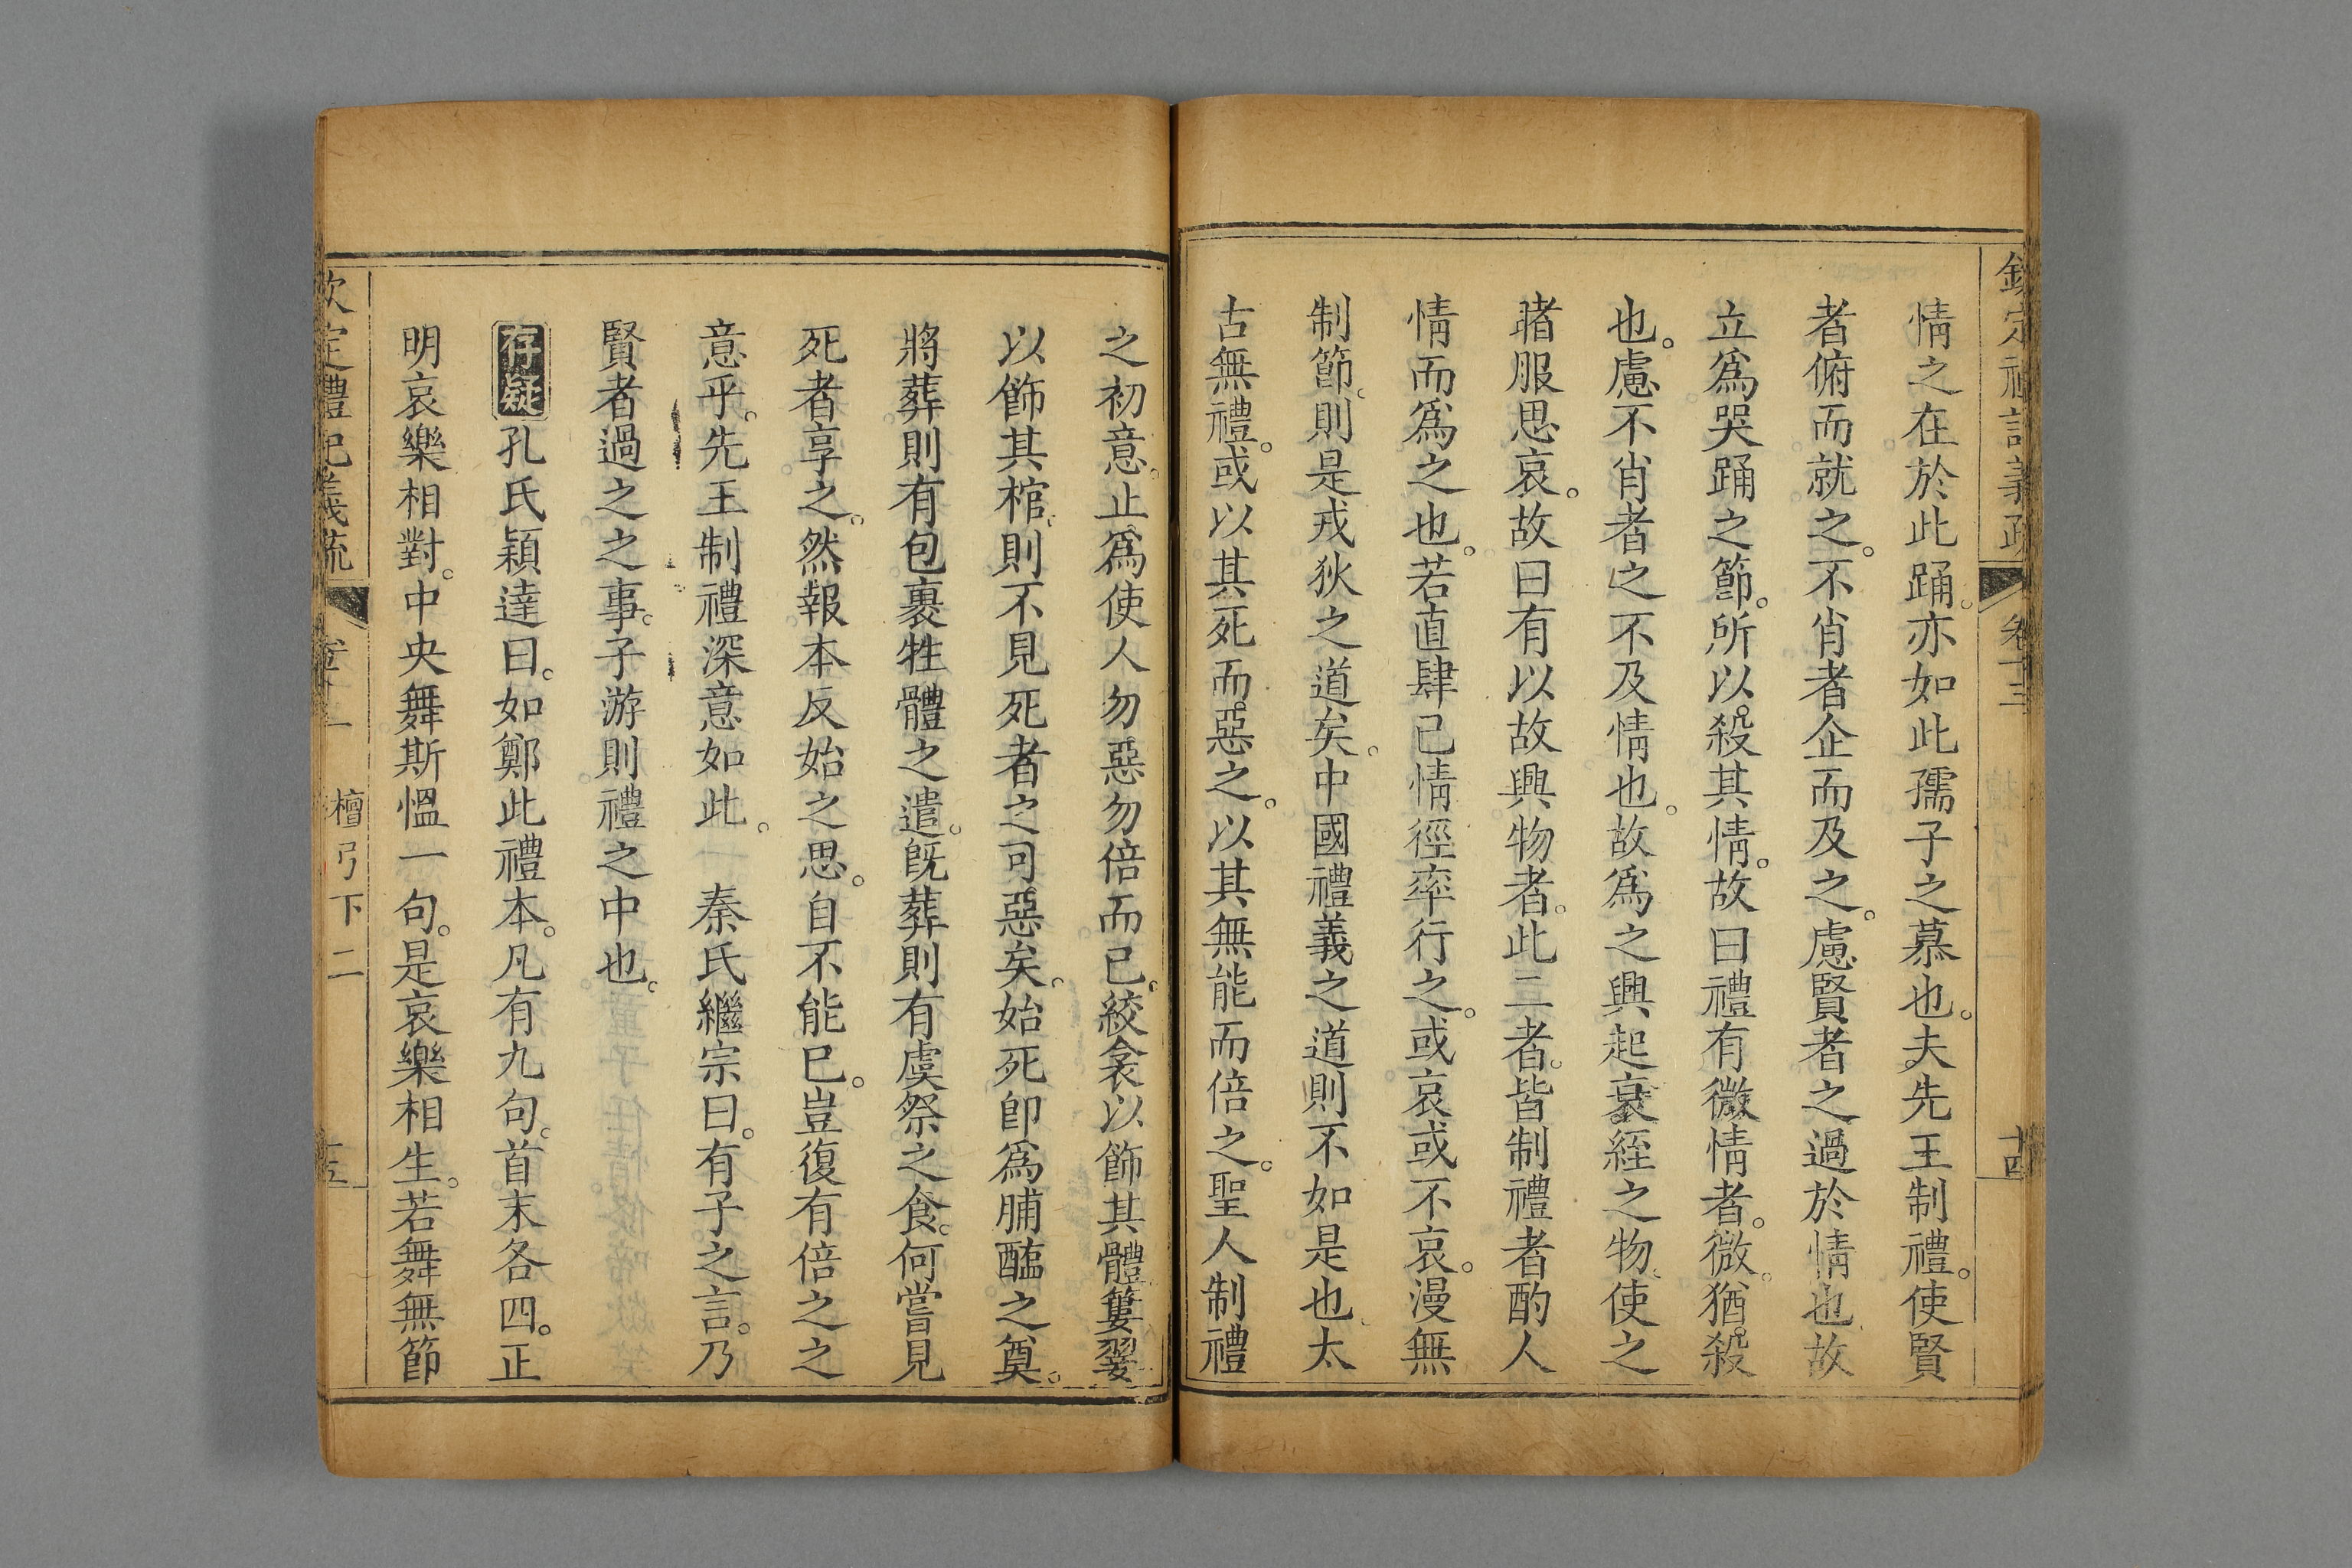 欽定禮記義疏 卷十三 十四
情之在於此踊。亦如此孺子之慕也。夫先王制禮。使賢
者俯而就之。不肖者企而及之。慮賢者之過於情也。故
立爲哭踊之節。所以殺其情。故曰禮有微情者。微。猶殺
也。慮不肖者之不及情也。故爲之興起衰絰之物。使之
睹服思哀。故曰有以故興物者。此二者。皆制禮者酌人
情而爲之也。若直肆己情徑率行之。或哀或不哀。漫無
制節。則是戎狄之道矣。中國禮義之道則不如是也。太
古無禮。或以其死而惡之。以其無能而倍之。聖人制禮
之初意。止爲使人勿惡勿倍而已。絞衾以飾其體。蔞翣
以飾其棺。則不見死者之可惡矣。始死卽爲脯醢之奠。
將葬則有包裹牲體之遣。旣葬則有虞祭之食。何嘗見
死者享之。然報本反始之思。自不能已。豈復有倍之之
意乎。先王制禮深意如此。 秦氏繼宗曰。有子之言。乃
賢者過之之事。子游則禮之中也。
存疑 孔氏穎達曰。如鄭此禮本。凡有九句。首末各四。正
明哀樂相對。中央舞斯慍一句。是哀樂相生。若舞無節
欽定禮記義疏 檀弓下二 十五